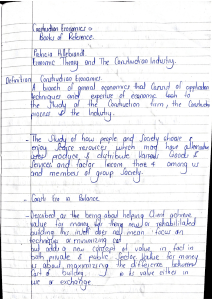 Construction Economics :-
Books of Reference.
Patricia Hillebrandt
Economic Theory and The Construction Industry.
Definition Construction Economics.
A branch of general economics that consist of application
techniques and expertise of economic to
the Study of the Construction firm, the Construction
process & the Industry.
- The Study of how people and Society choose &
enjoy Scarce resources which may have alternative
produce & distribute Goods &
Services and them & among us
and members of group Society.
- Costs For in Balance
Described as the being about helping Client achieve
value for money for new or rehabilitated
building this does not mean focus on
technique or minimizing cost
but adds a new concept of value, in fact in
both private & public Sector Value for money
is about maximizing the difference between
cost of building and its value either in
use or exchange